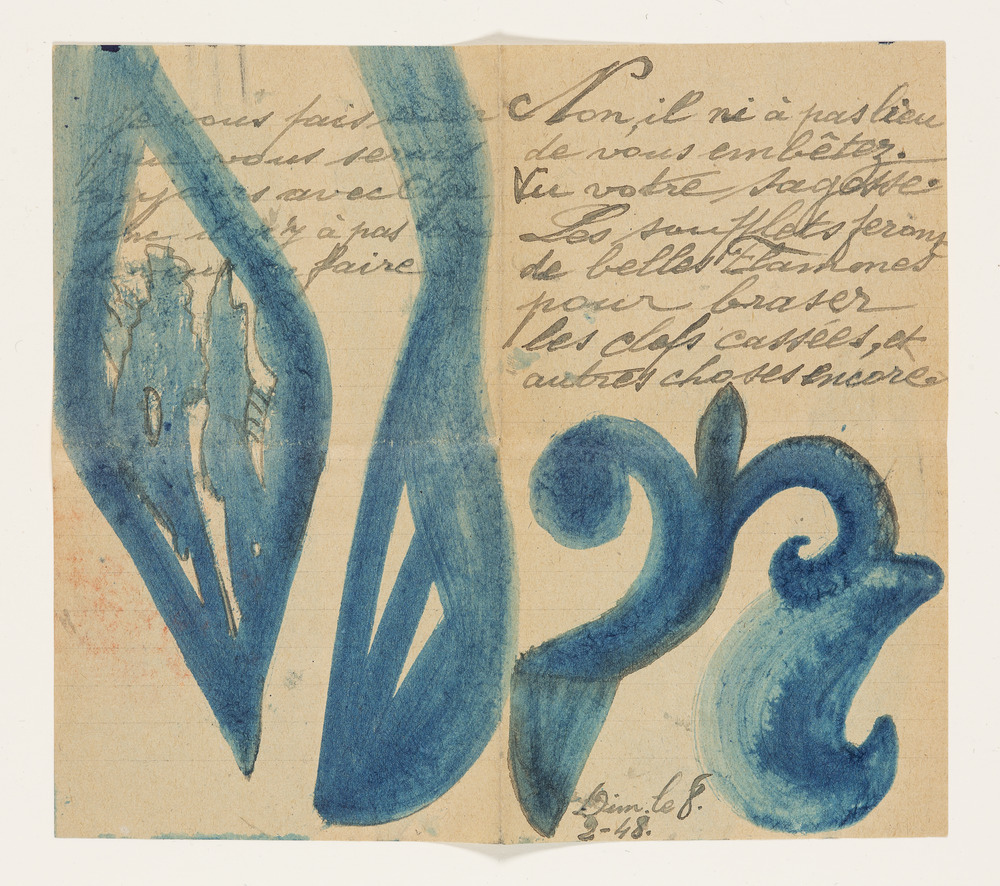 Je vous fais
que vous
avec
à pas
faire
Non, il ni à pas lieu
de vous embêtez.
Vu votre sagesse.
Les soufflets feront
de belles Flammes
pour braser
les clefs cassées, et
autres choses encore.
Dim. le 8.
2-48.